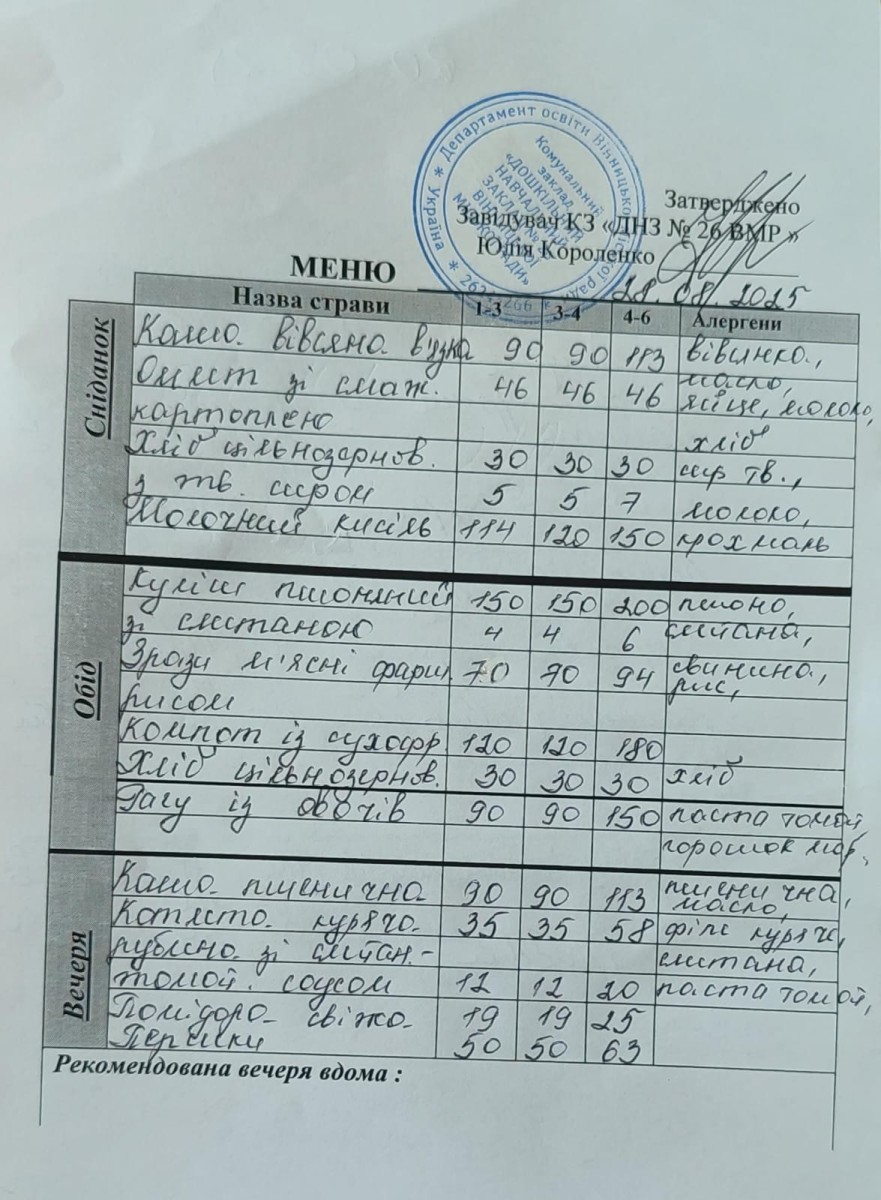 Україна * Департамент освіти Вінницької міської ради *
Комунальний
заклад
«ДОШКІЛЬНИЙ
НАВЧАЛЬНИЙ
ЗАКЛАД №
ВІННИЦЬКОЇ
МІСЬКОЇ РАДИ»
Затверджено
Завідувач КЗ «ДНЗ № 26 ВМР »
Юлія Короленко
28.08.2025
МЕНЮ
Назва страви 1-3 3-4 4-6 Алергени
Сніданок
Каша вівсяна в'язка 90 90 113 вівсянка,
Омлет зі смаж. 46 46 46 масло,
картоплею яйце, молоко,
Хліб цільнозернов. 30 30 30 хліб
з тв. сиром 5 5 7 сир тв.,
Молочний кисіль 114 120 150 молоко,
крохмаль
Обід
Куліш пшоняний 150 150 200 пшоно,
зі сметаною 4 4 6 сметана,
Зрази м'ясні фарш. 70 70 94 свинина,
рисом рис,
Компот із сухофр 120 120 180
Хліб цільнозернов. 30 30 30 хліб
Рагу із овочів 90 90 150 паста томат,
горошок мор,
Вечеря
Каша пшенична 90 90 113 пшенична,
масло,
Котлета куряча 35 35 58 філе куряче,
рублена зі сметан.- сметана,
томат. соусом 12 12 20 паста томат,
Помідора свіжа 19 19 25
Персики 50 50 63
Рекомендована вечеря вдома :